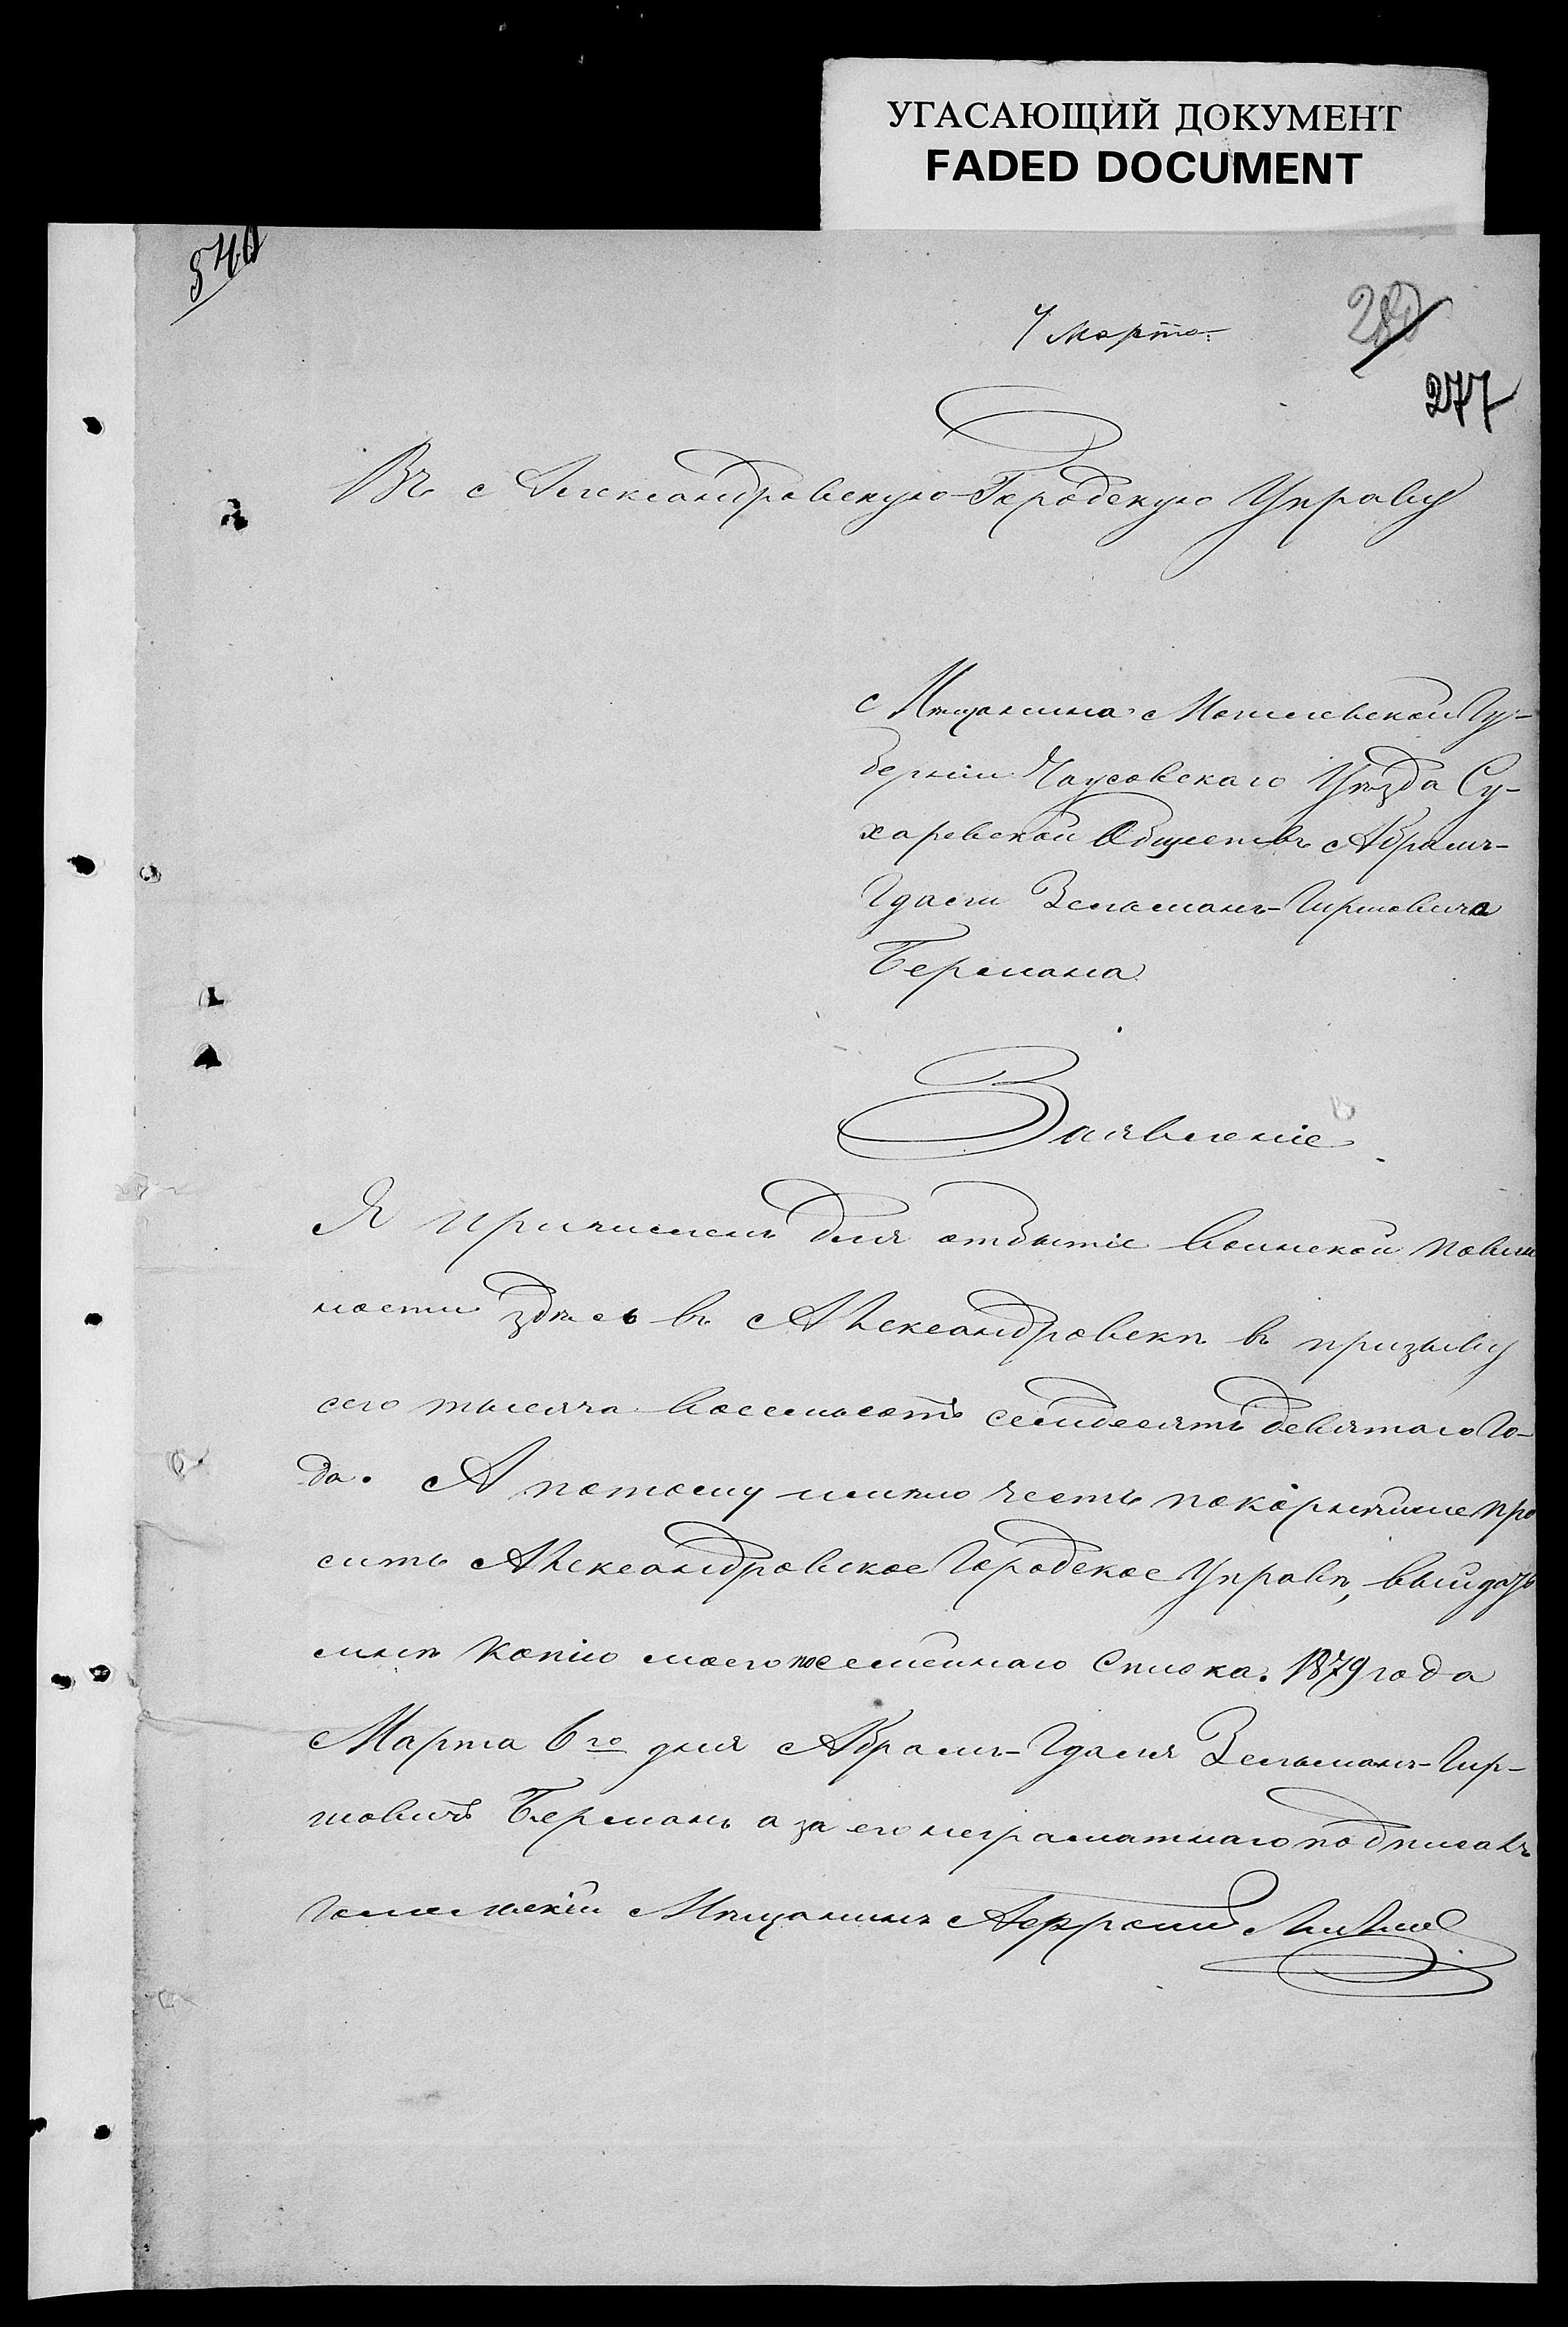 УГАСАЮЩИЙ ДОКУМЕНТ
FADED DOCUMENT
540
7 Марта
280
277
Въ Александровскую Городскую Управу
Мѣщанина Могилевской Гу-
берніи Чаусовскаго Уѣзда Су-
харевской Обществѣ Абрамъ-
Гдали Зельманъ-Гиршовича
Бермана
Заявленіе
Я причисленъ для отбытіе воинской повин
ности здѣсь въ Александровскѣ въ призыву
сего тысяча восемьсотъ семдесятъ девятаго Го-
да. А потому имѣю честь покорнѣйше про
сить Александровское Городское Управѣ, выйдать
мнѣ копію моего посемейнаго Списка. 1879 года
Марта 6го дня Абрамъ-Гдаля Зельманъ-Гир-
шовичъ Берманъ а за его неграматнаго подписалъ
Мѣщанинъ